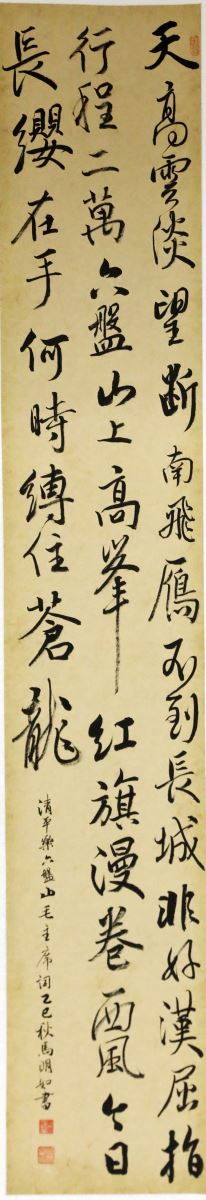 天高雲淡望斷南飛鴈不到長城非好漢屈指
行程二萬六盤山上高峯紅旗漫卷西風今日
長纓在手何時縛住蒼龍
清平樂六盤山毛主席詞乙巳秋馬明如書